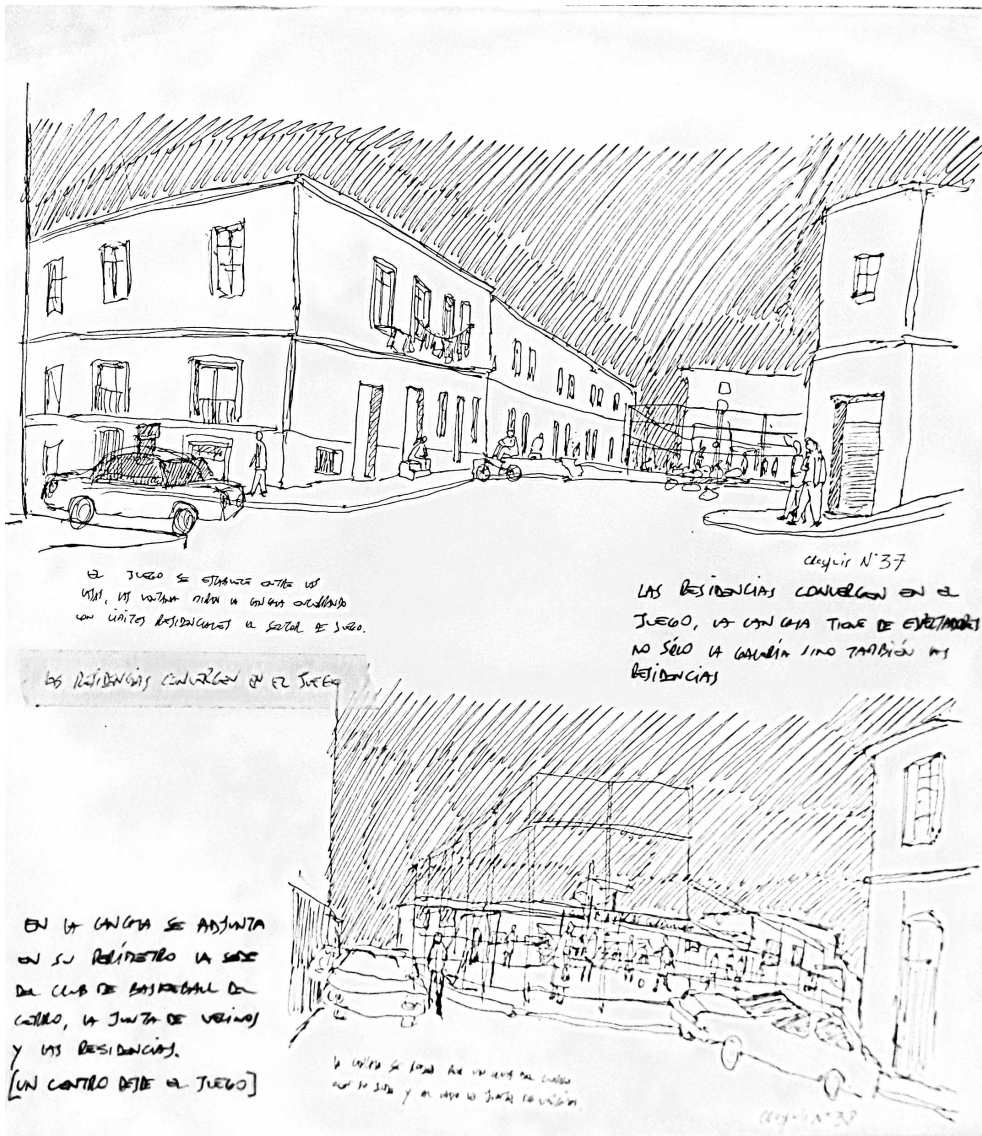 EL JUEGO SE ESTABLECE ENTRE LAS
, LAS VENTANA MIRAN LA CANCHA ENCERRANDO
CON LÍMITES RESIDENCIALES EL SECTOR DE JUEGO.
LAS RESIDENCIAS CONVERGEN EN EL JUEGO
Croquis N°37
LAS RESIDENCIAS CONVERGEN EN EL
JUEGO, LA CANCHA TIENE DE ESPECTADORES
NO SÓLO LA GALERÍA SINO TAMBIÉN LAS
RESIDENCIAS
EN LA CANCHA SE ADJUNTA
EN SU PERÍMETRO LA SEDE
DEL CLUB DE BASKEBALL DEL
CERRO, LA JUNTA DE VECINOS
Y LAS RESIDENCIAS.
[UN CENTRO DESDE EL JUEGO]
LA SE POR UN DEL
CON SU SEDE Y AL LADO LA JUNTA DE VECINOS.
Croquis N°38